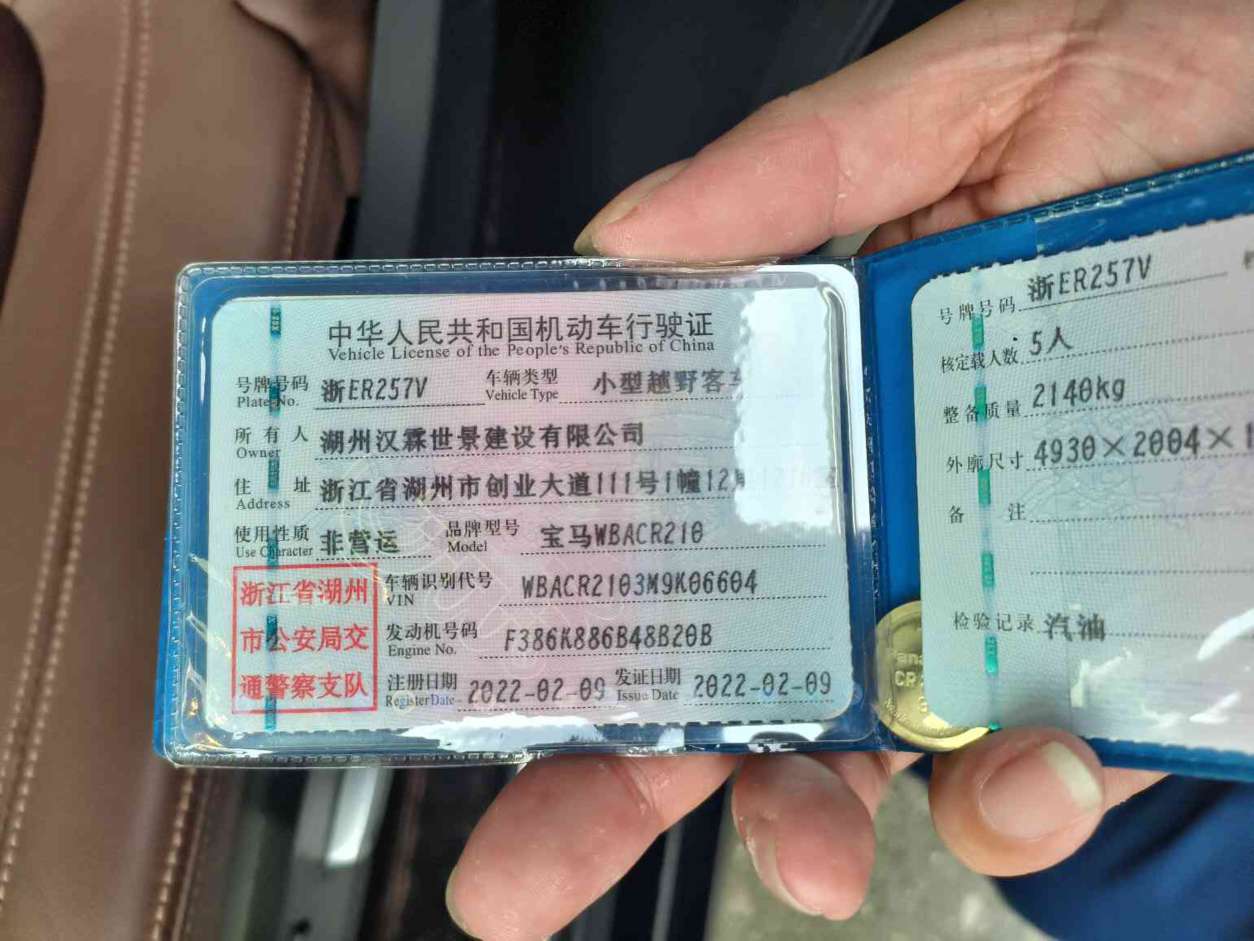 中华人民共和国机动车行驶证
Vehicle License of the People's Republic of China
号牌号码 浙ER257V 车辆类型 小型越野客车
Plate No. Vehicle Type
所有人 湖州汉霖世景建设有限公司
Owner
住址 浙江省湖州市创业大道111号1幢12
Address
使用性质 非营运 品牌型号 宝马WBACR210
Use Character Model
浙江省湖州
市公安局交
通警察支队
车辆识别代号 WBACR2103M9K06604
VIN
发动机号码 F386K886B48B20B
Engine No.
注册日期 2022-02-09 发证日期 2022-02-09
Register Date Issue Date
号牌号码 浙ER257V
核定载人数 5人
整备质量 2140kg
外廓尺寸 4930×2004×
备注
检验记录 汽油
CR